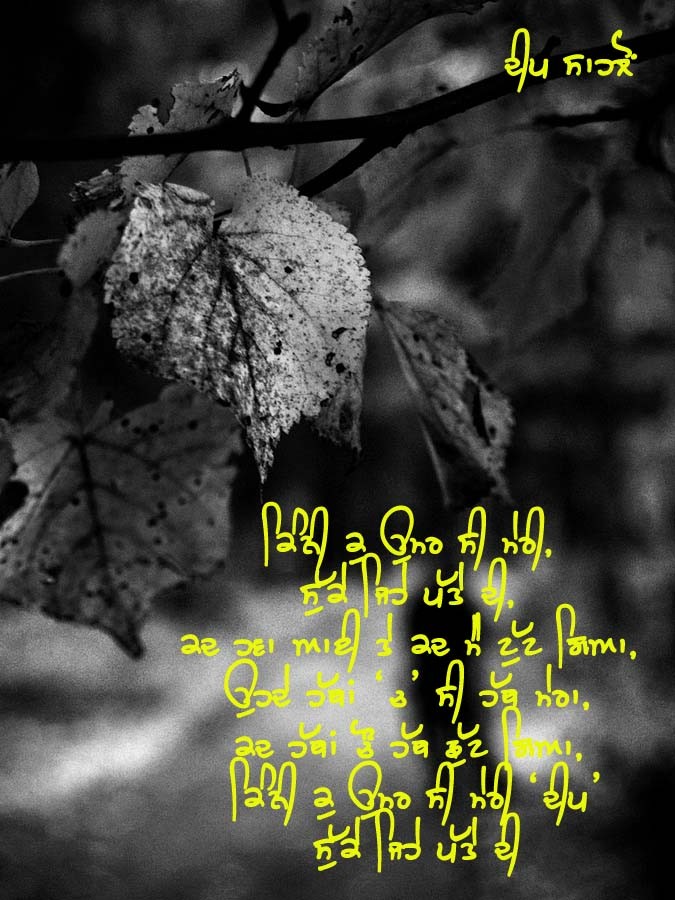 ਦੀਪ ਸਾਹਣੇ
ਕਿੰਨੀ ਕੁ ਉਮਰ ਸੀ ਮੇਰੀ,
ਸੁੱਕੇ ਜਿਹੇ ਪੱਤੇ ਦੀ,
ਕਦ ਹਵਾ ਆਈ ਤੇ ਕਦ ਮੈਂ ਟੁੱਟ ਗਿਆ,
ਉਹਦੇ ਹੱਥਾਂ 'ਚ ਸੀ ਹੱਥ ਮੇਰਾ,
ਕਦ ਹੱਥਾਂ ਤੋਂ ਹੱਥ ਛੁੱਟ ਗਿਆ,
ਕਿੰਨੀ ਕੁ ਉਮਰ ਸੀ ਮੇਰੀ 'ਦੀਪ'
ਸੁੱਕੇ ਜਿਹੇ ਪੱਤੇ ਦੀ